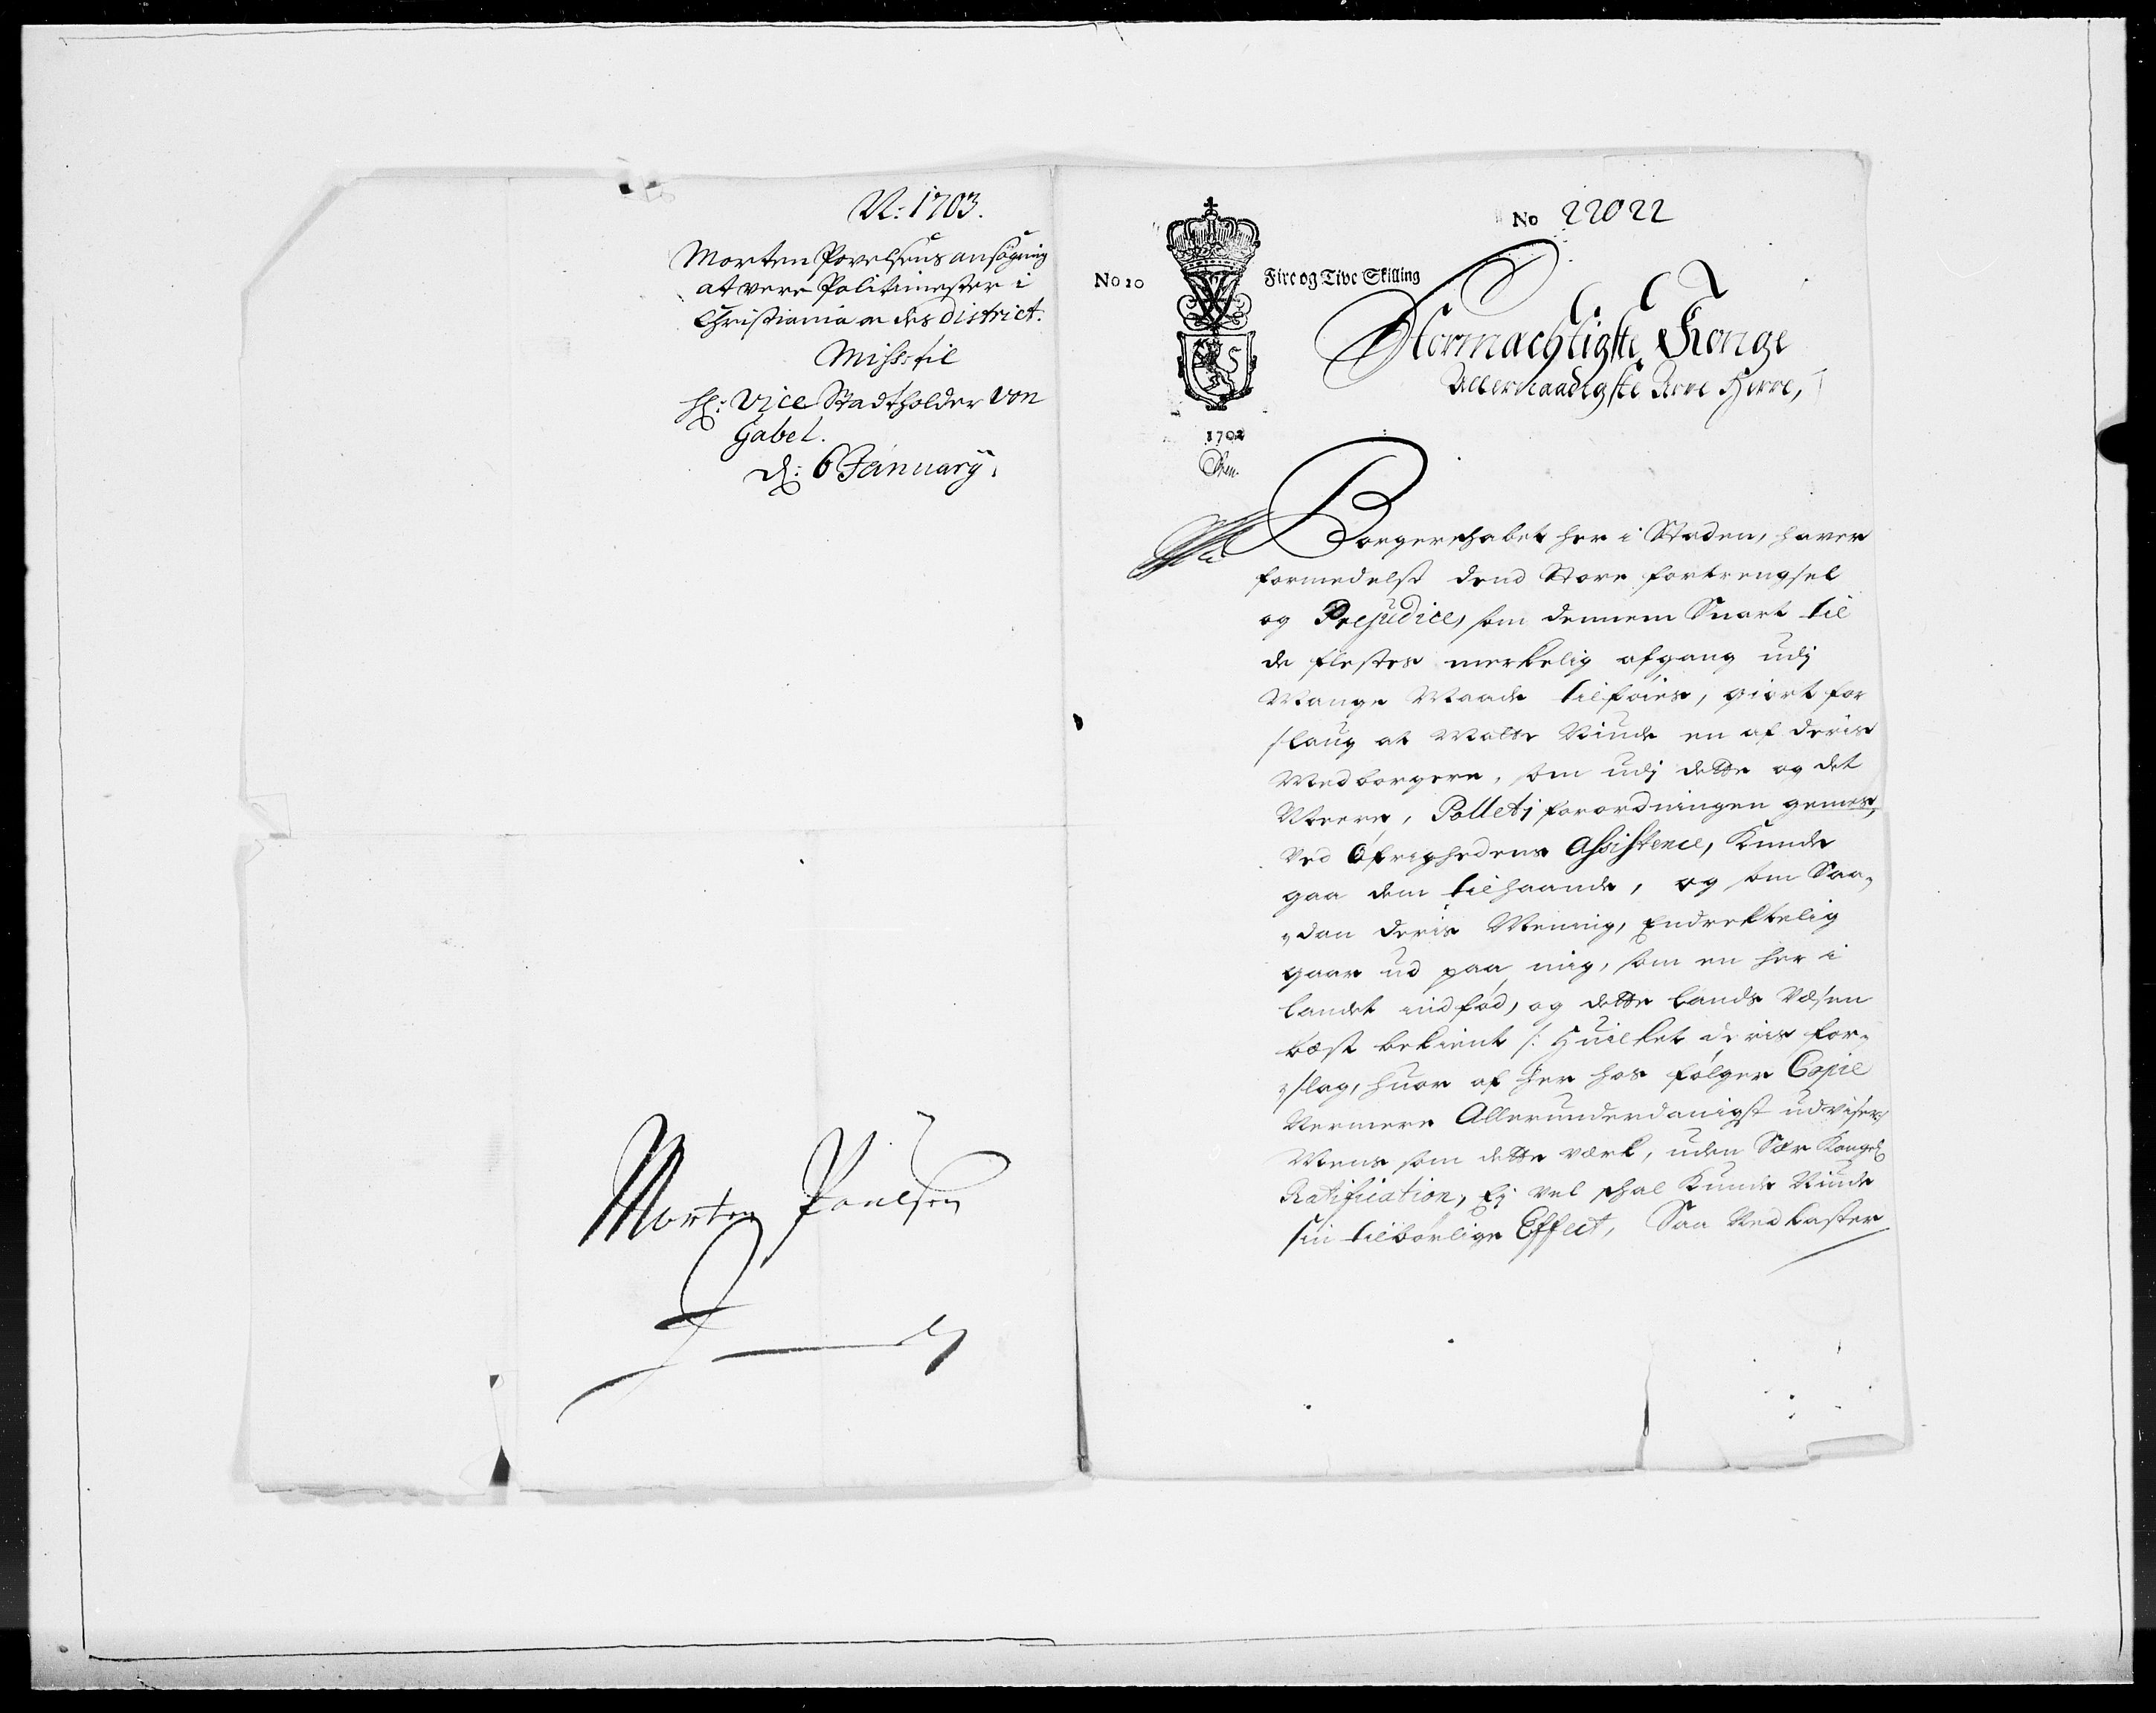 N: 1703.
Morten Povelsens ansögning
at vere Politimester i
Christiania oc des District.
Miss: til
Hr: Vice Stadtholder von
Gabel.
d: 6 January.
Morten Poulsen
No 22022
No 20
Fire og Tive Skilling
1702
Stormächtigste Konge
Allernaadigste Arve Herre,
Borgerschabet her i Staden, haver
formedelst dend Store fortrengsel
og Prejudice, som dennem Snart til
de flestes merkelig afgang udj
Mange Maade tilföies, giort for
slaug at Matte Niude en af deris
Medborgere, som udj dette og det
Meere, Polletj forordningen gemes,
ved Öfrighedens Assistence, Kunde
gaa dem tilhaande, og som Saa„
„dan deris Mening, Endrektelig
gaar ud paa mig, som en her i
landet indföd, og dette lands Væsen
best bekient /: Huilket deris for„
„slag, huor af her hos fölger Copie
Nermere Allerunderdanigst udviser:/
Mens som dette verk, uden Sær Kongel:
Ratification, Ej vel schal Kunde Niude
sin tilbörlige Effect, Saa Nedkaster